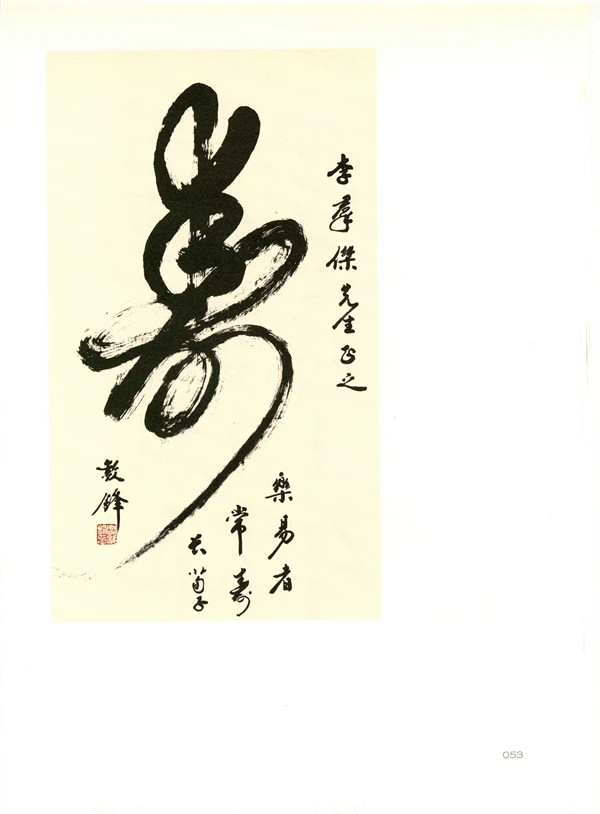 李羣傑先生正之
壽
樂易者
常壽
長 荀子
鋒
053